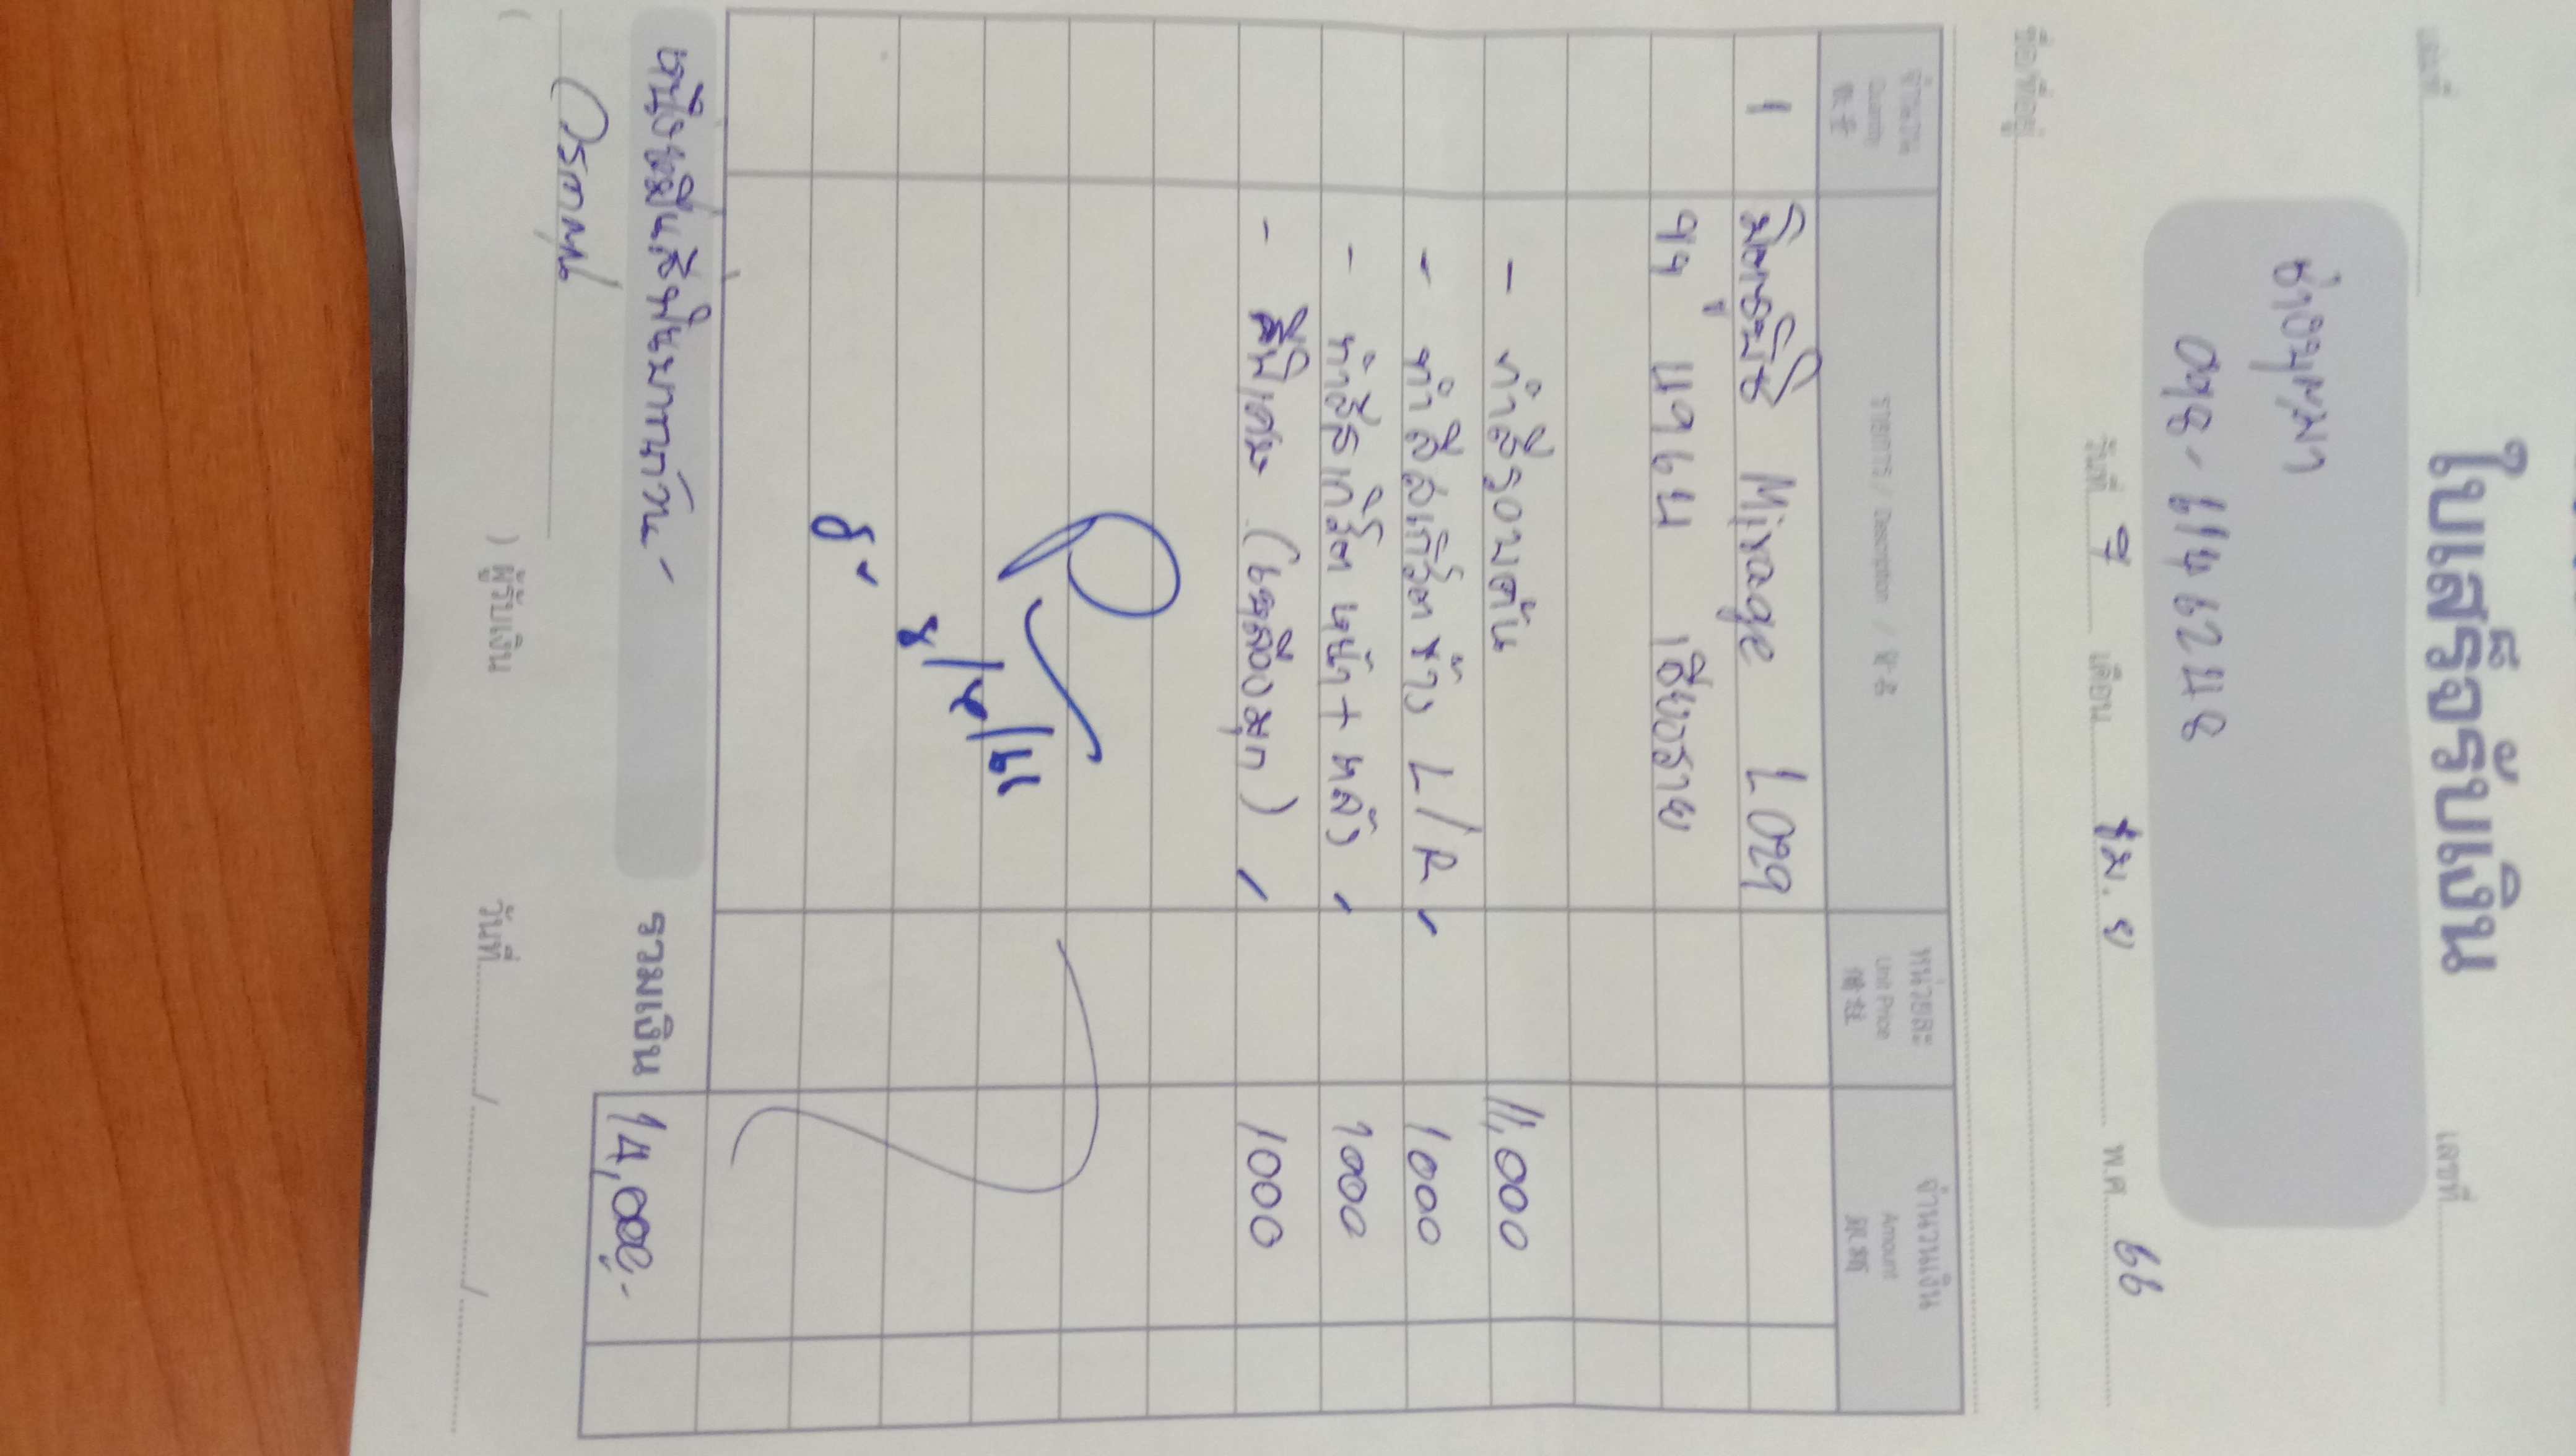 ใบเสร็จรับเงิน
เล่มที่ เลขที่
ช่างบุญมา
วันที่ 7 เดือน เม.ย พ.ศ. 66
ชื่อ/ที่อยู่
จำนวน รายการ / Description / 項目 หน่วยละ จำนวนเงิน
Quantity Unit Price Amount
數量 價錢 銀碼
1 มิตซูบิชิ Mirage L029
เชียงราย
- ทำสีรอบคัน 11,000
- ทำสีสเกิร์ตข้าง L/R 1000
- ทำสีสเกิร์ต หน้า + หลัง 1000
- สีพิเศษ (เหลืองมุก) 1000
หนึ่งหมื่นสี่พันบาทถ้วน- รวมเงิน 14,000.-
วรกานต์
( ) ผู้รับเงิน วันที่ / /